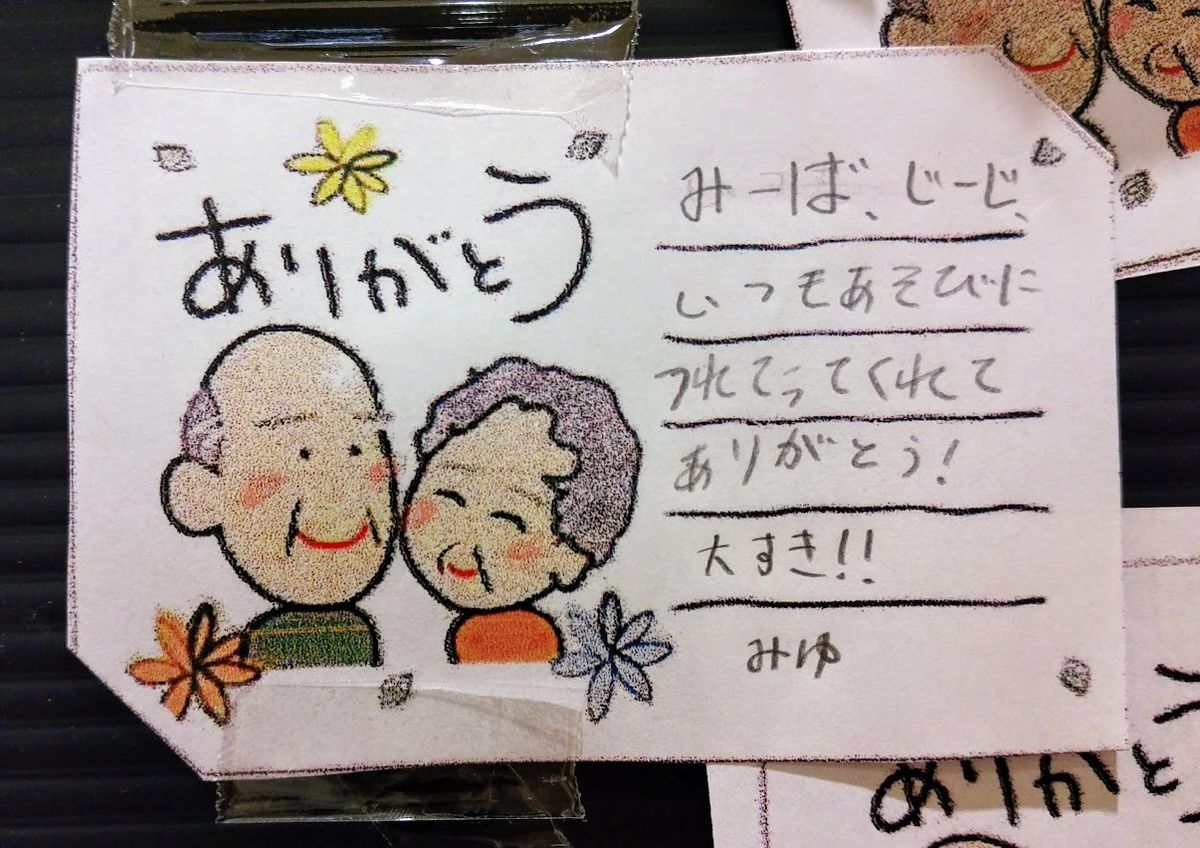 ありがとう
みーば、じーじ、
いつもあそびに
つれてってくれて
ありがとう!
大すき!!
みゆ
ありがと